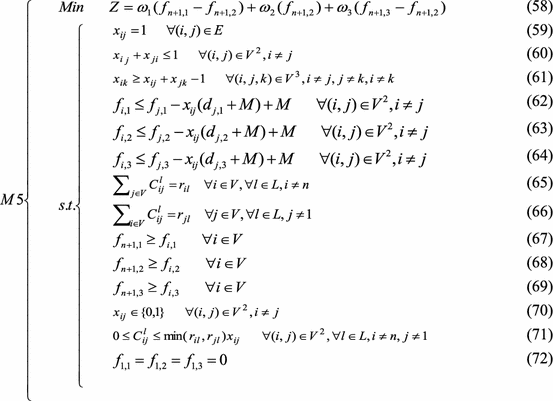 Min Z = ω₁(fₙ₊₁,₁ − fₙ₊₁,₂) + ω₂(fₙ₊₁,₂) + ω₃(fₙ₊₁,₃ − fₙ₊₁,₂) (58)
x_{ij} = 1 ∀(i, j) ∈ E (59)
x_{ij} + x_{ji} ≤ 1 ∀(i, j) ∈ V², i ≠ j (60)
x_{ik} ≥ x_{ij} + x_{jk} − 1 ∀(i, j, k) ∈ V³, i ≠ j, j ≠ k, i ≠ k (61)
f_{i,1} ≤ f_{j,1} − x_{ij}(d_{j,1} + M) + M ∀(i, j) ∈ V², i ≠ j (62)
f_{i,2} ≤ f_{j,2} − x_{ij}(d_{j,2} + M) + M ∀(i, j) ∈ V², i ≠ j (63)
f_{i,3} ≤ f_{j,3} − x_{ij}(d_{j,3} + M) + M ∀(i, j) ∈ V², i ≠ j (64)
M5 s.t. ∑_{j∈V} C_{ij}^{l} = r_{il} ∀i ∈ V, ∀l ∈ L, i ≠ n (65)
∑_{i∈V} C_{ij}^{l} = r_{jl} ∀j ∈ V, ∀l ∈ L, j ≠ 1 (66)
f_{n+1,1} ≥ f_{i,1} ∀i ∈ V (67)
f_{n+1,2} ≥ f_{i,2} ∀i ∈ V (68)
f_{n+1,3} ≥ f_{i,3} ∀i ∈ V (69)
x_{ij} ∈ {0,1} ∀(i, j) ∈ V², i ≠ j (70)
0 ≤ C_{ij}^{l} ≤ min(r_{il}, r_{jl})x_{ij} ∀(i, j) ∈ V², ∀l ∈ L, i ≠ n, j ≠ 1 (71)
f_{1,1} = f_{1,2} = f_{1,3} = 0 (72)